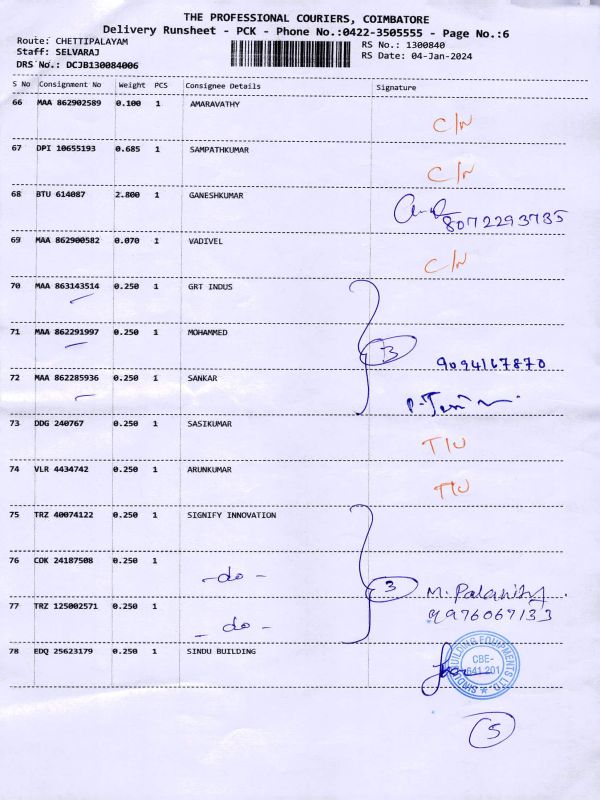 THE PROFESSIONAL COURIERS, COIMBATORE
Delivery Runsheet - PCK - Phone No.:0422-3505555 - Page No.:6
Route: CHETTIPALAYAM
Staff: SELVARAJ
DRS No.: DCJB130084006
RS No.: 1300840
RS Date: 04-Jan-2024
S No Consignment No Weight PCS Consignee Details Signature
66 MAA 862902589 0.100 1 AMARAVATHY
C/N
67 DPI 10655193 0.685 1 SAMPATHKUMAR
C/N
68 BTU 614087 2.800 1 GANESHKUMAR
8072293735
69 MAA 862900582 0.070 1 VADIVEL
C/N
70 MAA 863143514 0.250 1 GRT INDUS
71 MAA 862291997 0.250 1 MOHAMMED
3
9094167870
72 MAA 862285936 0.250 1 SANKAR
73 DDG 240767 0.250 1 SASIKUMAR
TIU
74 VLR 4434742 0.250 1 ARUNKUMAR
TIU
75 TRZ 40074122 0.250 1 SIGNIFY INNOVATION
76 COK 24187508 0.250 1 -do-
3
77 TRZ 125002571 0.250 1 -do-
9976067133
78 EDQ 25623179 0.250 1 SINDU BUILDING
BUILDING EQUIPMENTS
CBE-
641 201
5